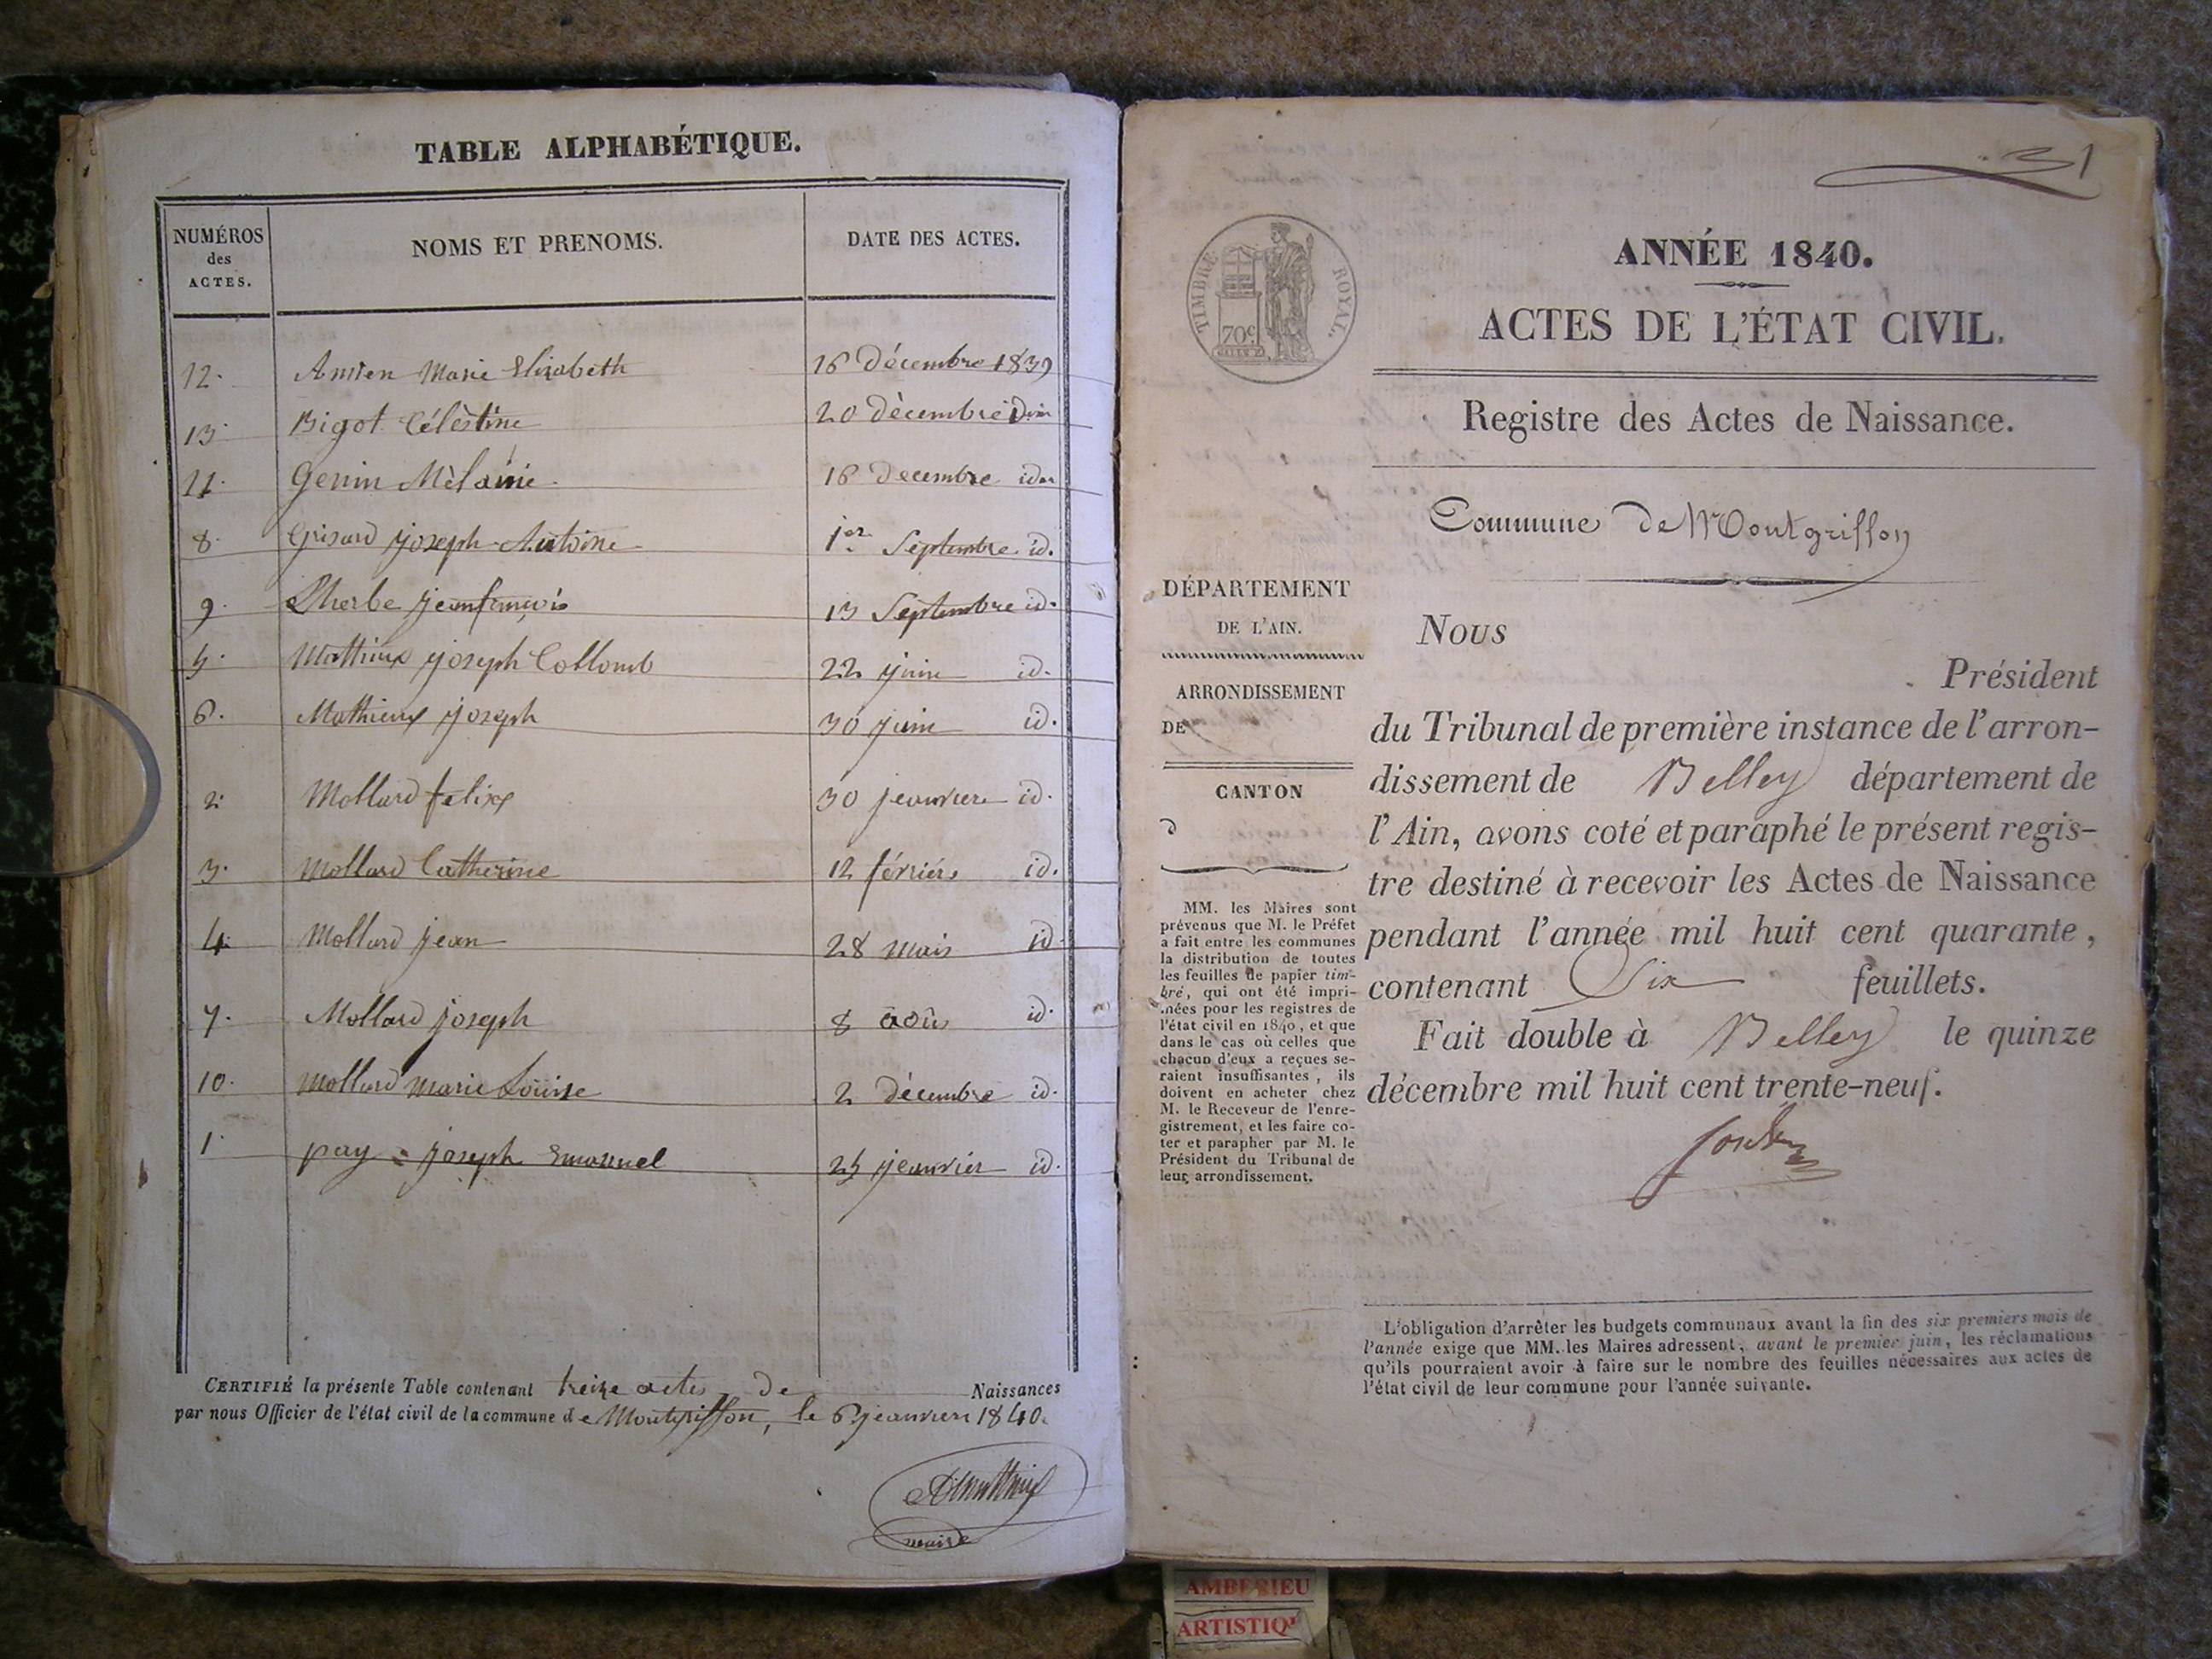 TABLE ALPHABÉTIQUE.
NUMÉROS des ACTES. NOMS ET PRENOMS. DATE DES ACTES.
12. Marie Elizabeth 16 décembre 1839
13. Bigot Célèstine 20 décembre
11. Genin Mèlainie 16 decembre
8. Grisard joseph Antoine 1er Septembre id.
9. Lherbe jean françois 13 Septembre id.
5. Matthieux joseph Collomb 22 juin id.
6. Mathieux joseph 30 juin id.
2. Mollard felix 30 jeanvier id.
3. Mollard Catherine 12 id.
4. Mollard jean 28 id.
7. Mollard joseph 8 id.
10. Mollard Marie Louise 2 décembre id.
1. pay joseph Emanuel 25 jeanvier id.
CERTIFIÉ la présente Table contenant treize actes de Naissances
par nous Officier de l'état civil de la commune de Montgriffon, le 6 jeanvier 1840.
maire
31
TIMBRE ROYAL.
70c
ANNÉE 1840.
ACTES DE L'ÉTAT CIVIL.
Registre des Actes de Naissance.
Commune de Montgriffon
DÉPARTEMENT
DE L'AIN.
ARRONDISSEMENT
DE
CANTON
MM. les Maires sont
prévenus que M. le Préfet
a fait entre les communes
la distribution de toutes
les feuilles de papier tim-
bré, qui ont été impri-
mées pour les registres de
l'état civil en 1840, et que
dans le cas où celles que
chacun d'eux a reçues se-
raient insuffisantes, ils
doivent en acheter chez
M. le Receveur de l'enre-
gistrement, et les faire co-
ter et parapher par M. le
Président du Tribunal de
leur arrondissement.
Nous
Président
du Tribunal de première instance de l'arron-
dissement de Belley département de
l'Ain, avons coté et paraphé le présent regis-
tre destiné à recevoir les Actes de Naissance
pendant l'année mil huit cent quarante,
contenant Six feuillets.
Fait double à Belley le quinze
décembre mil huit cent trente-neuf.
L'obligation d'arrêter les budgets communaux avant la fin des six premiers mois de
l'année exige que MM. les Maires adressent, avant le premier juin, les réclamations
qu'ils pourraient avoir à faire sur le nombre des feuilles nécessaires aux actes de
l'état civil de leur commune pour l'année suivante.
AMBERIEU
ARTISTIQU